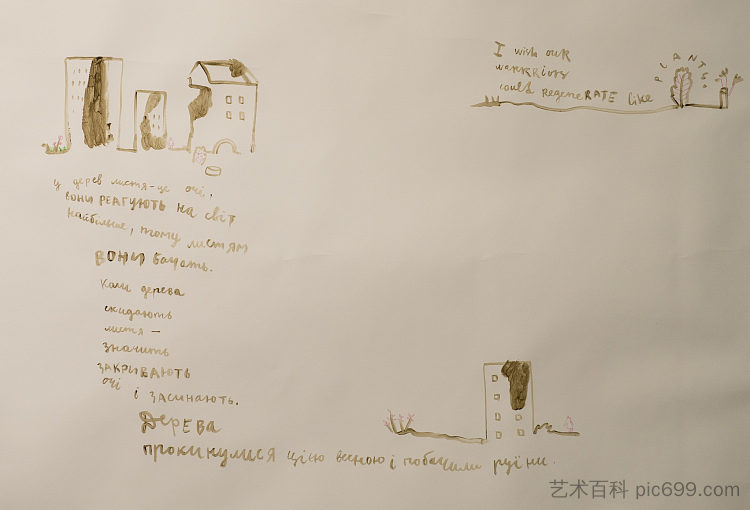 I wish our
warriors
could RegeneRATE like
PLANTS.
у дерев листя-це очі.
вони РЕАГУЮТЬ на світ
найбільше, тому листям
вони бачать.
Коли дерева
скидають
листя —
значить
ЗАКРИВАЮТЬ
очі і засинають.
Дерева
прокинулися цією весною і побачили руїни.
艺术百科 pic699.com